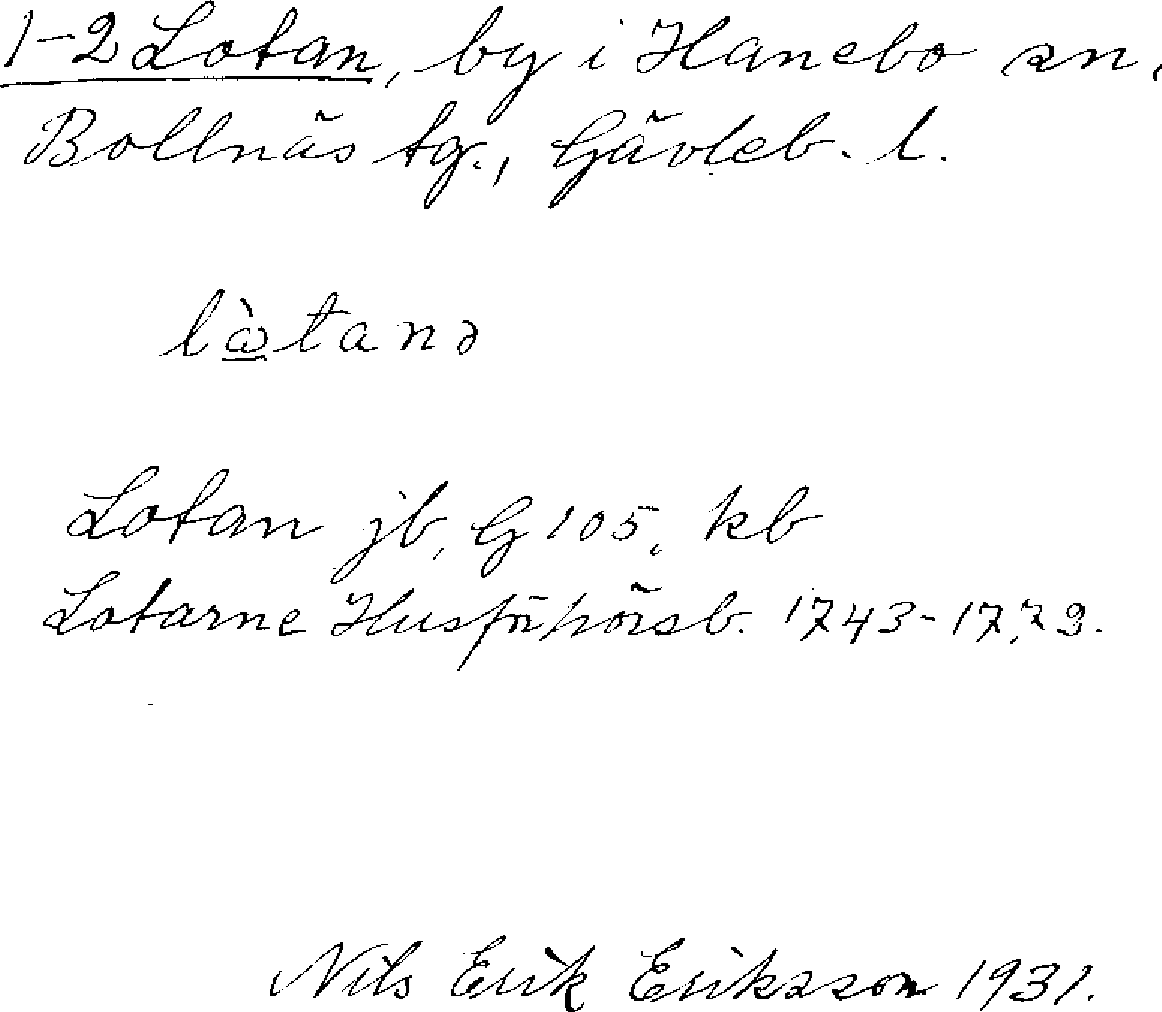 1-2 Lotan, by i Hanebo sn,
Bollnäs tg., Gävleb. l.
lὼtanə
Lotan jb, G 105, kb
Lotarne Husförhörsb. 1743-1779.
Nils Erik Eriksson 1931.